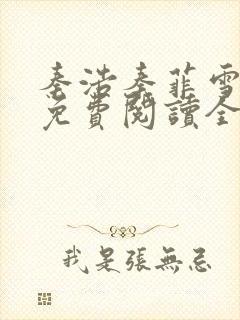 秦浩秦菲雪
免費閱讀全
我是張無忌